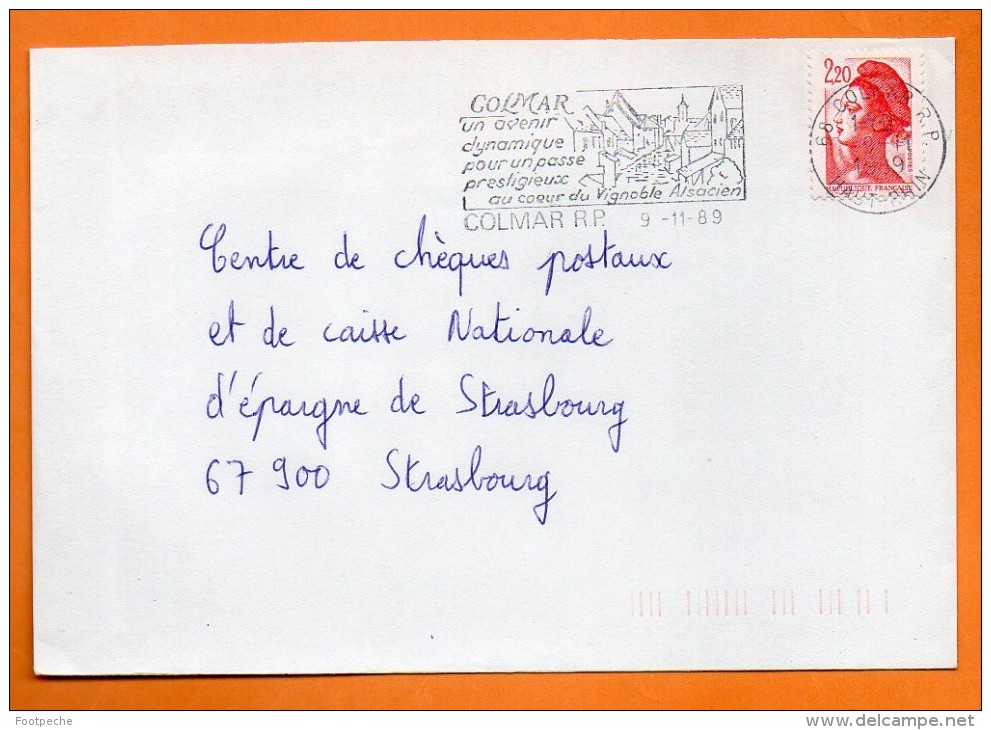 COLMAR
un avenir
dynamique
pour un passe
prestigieux
au coeur du Vignoble Alsacien
COLMAR R.P. 9 -11-89
2,20
REPUBLIQUE FRANCAISE
68 COLMAR R.P.
HAUT-RHIN
Centre de chèques postaux
et de caisse Nationale
d'épargne de Strasbourg
67 900 Strasbourg
Footpeche
www.delcampe.net